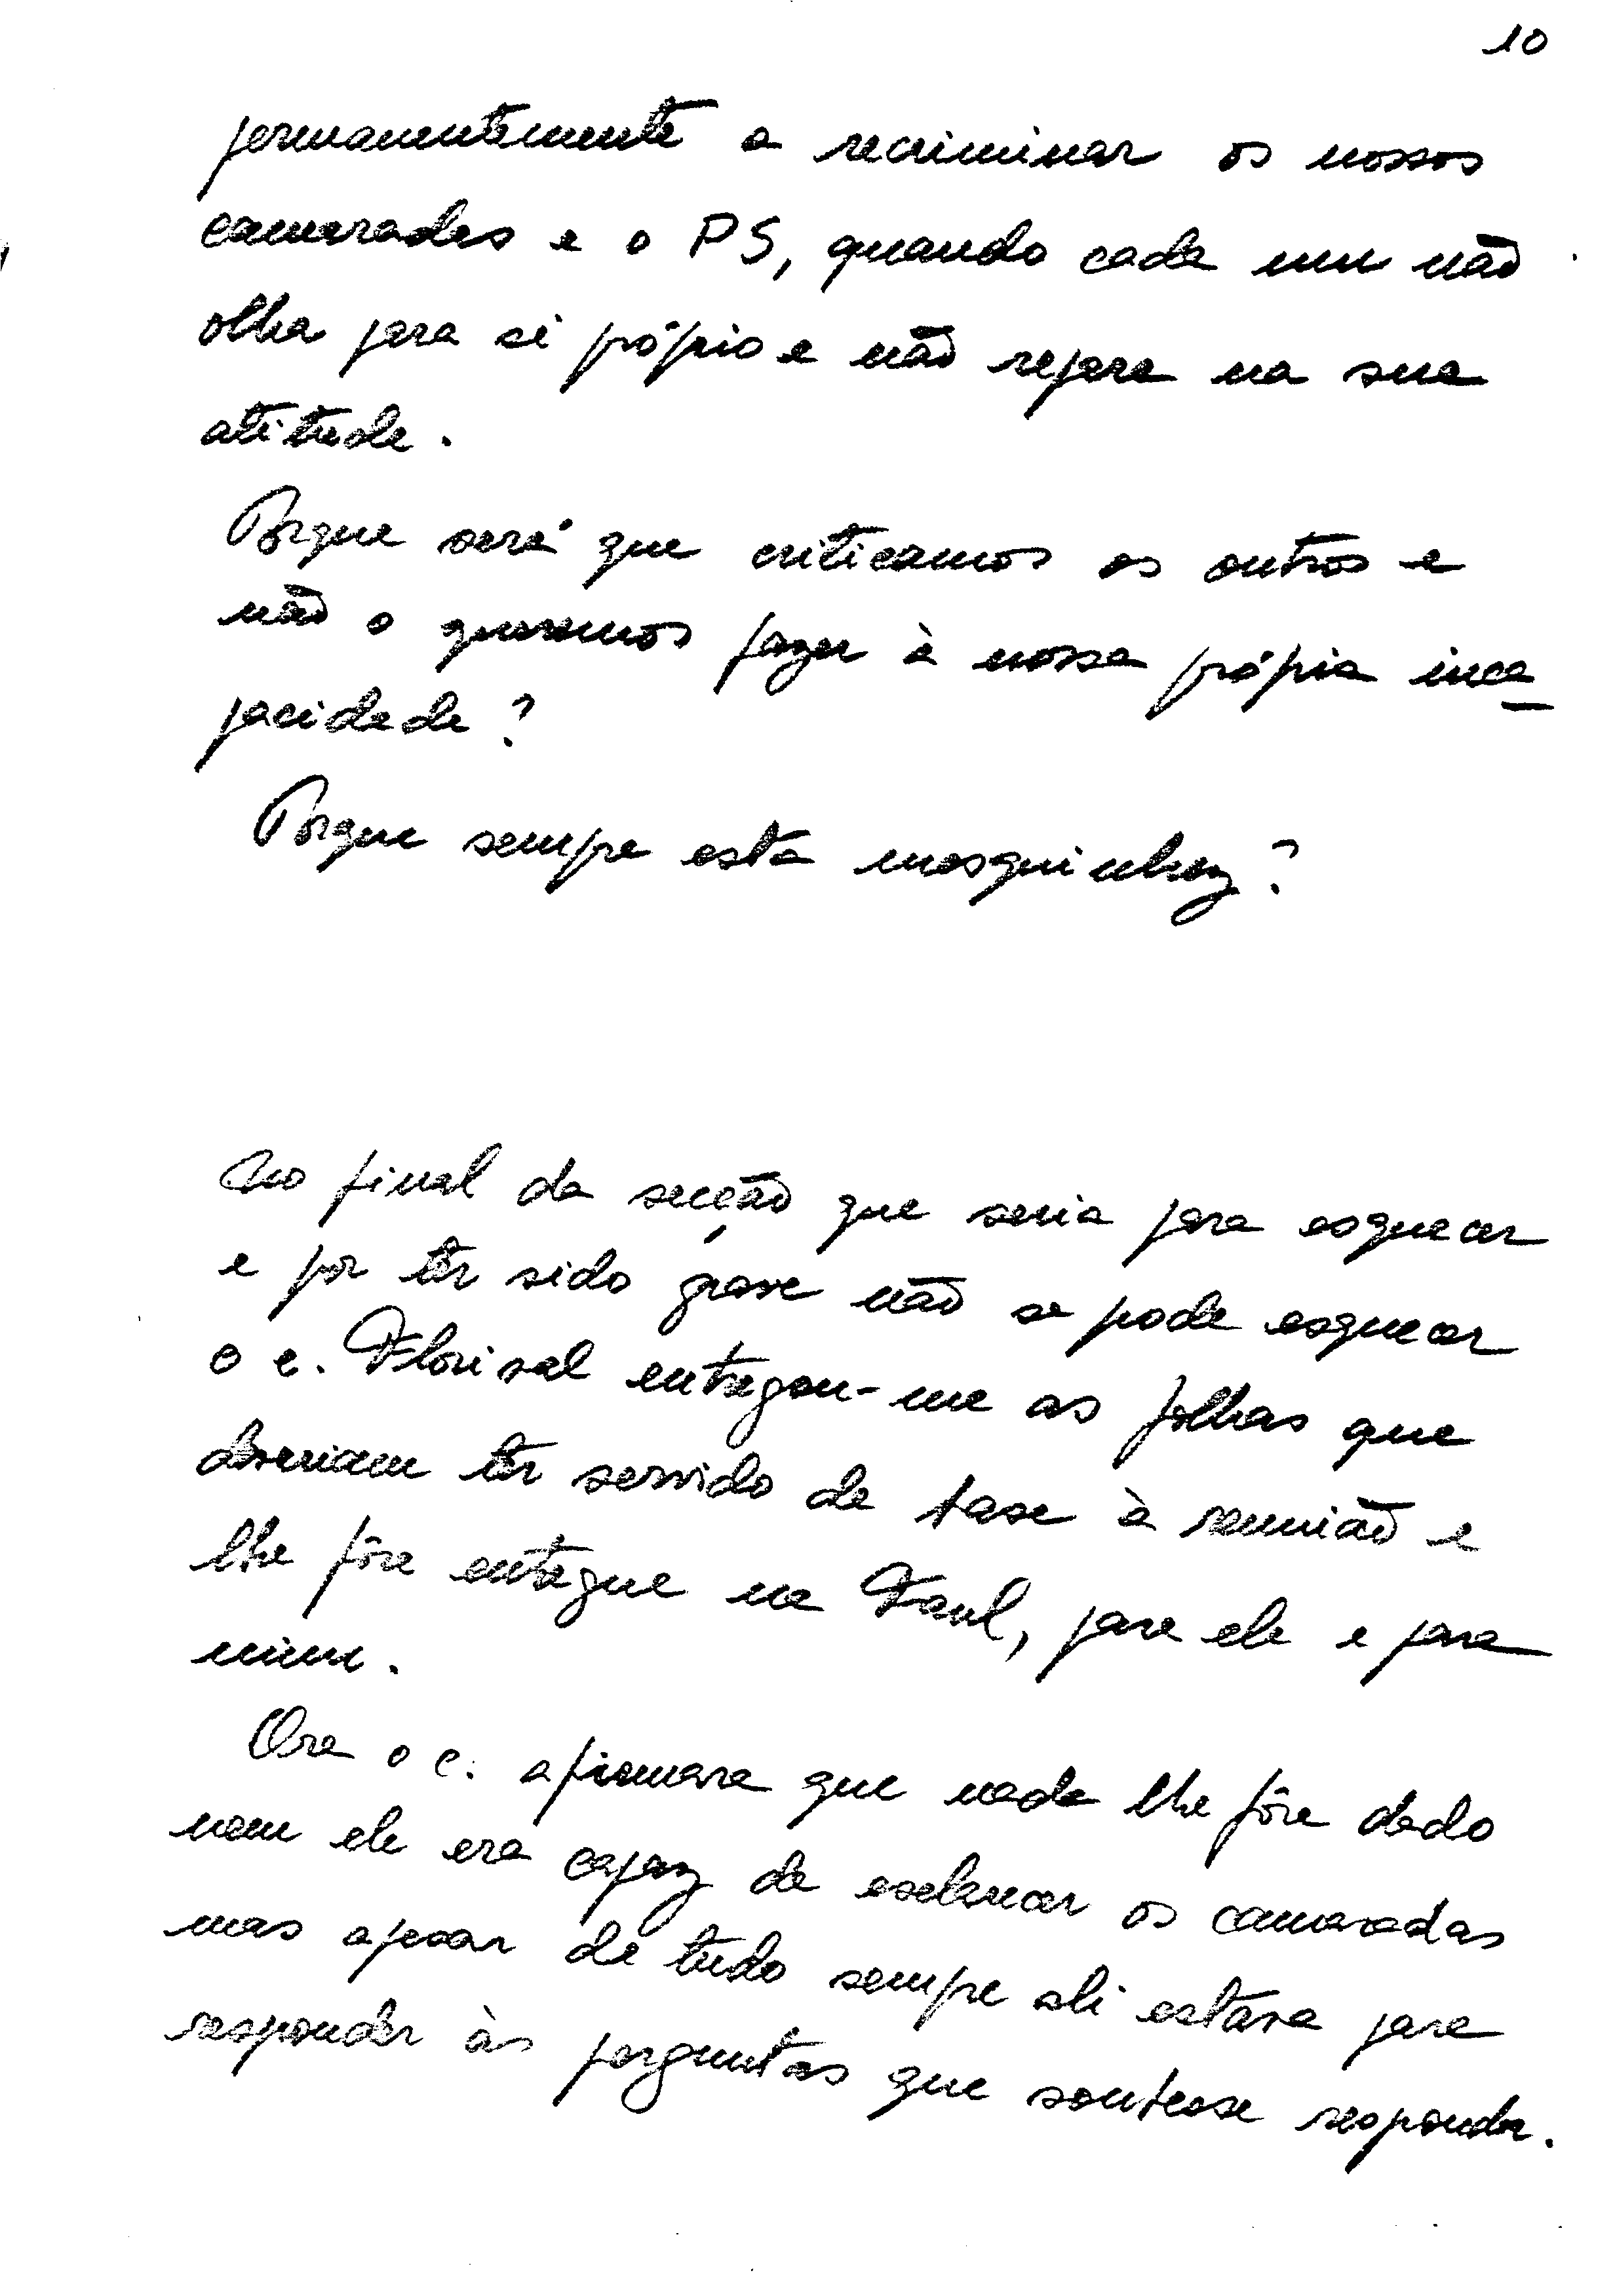 10
permanentemente a recriminar os nossos
camaradas e o PS, quando cada um não
olha para si própio e não repara na sua
atitude.
Porque será que criticamos os outros e
não o queremos fazer à nossa própia inca
pacidade?
Porque sempre esta mesquinhez?
No final da secção que seria para esquecer
e por têr sido grave não se pode esquecer
o c. Florival entregou-me as folhas que
deveriam têr servido de base à reunião e
lhe fôra entregue na Faul, para ele e para
mim.
Ora o c. afirmara que nada lhe fôra dado
nem ele era capaz de esclarecer os camaradas
mas apesar de tudo sempre ali estava para
responder às perguntas que soubesse responder.